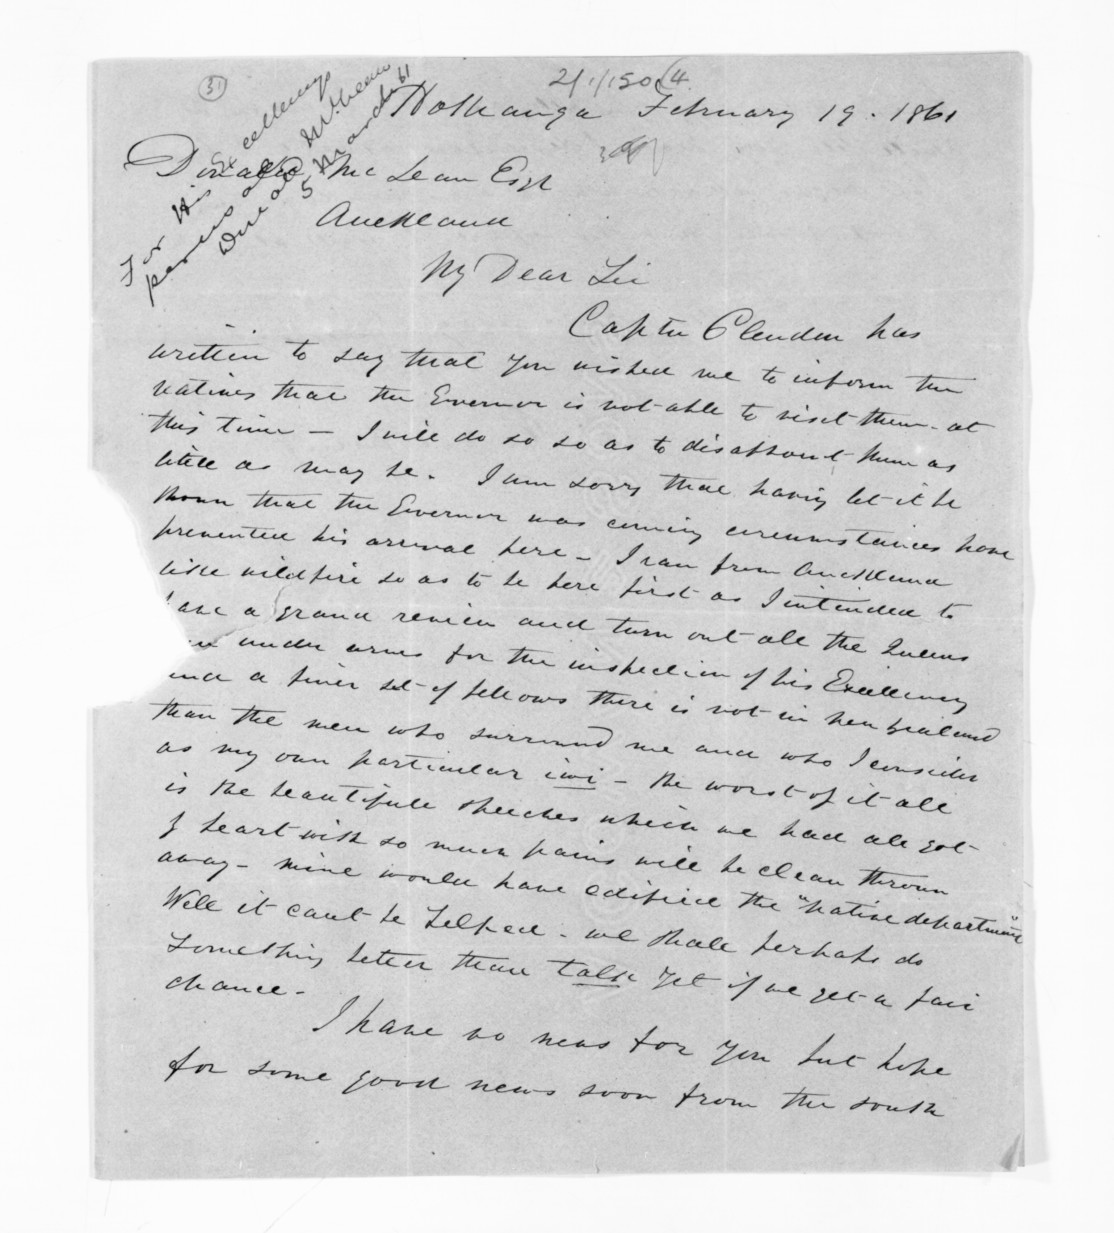 31
21/1/50 (4
For His Excellencys
perusal
Donald McLean
5 March 61
Hokianga February 19. 1861
Donald McLean Esqr
Auckland
My Dear Sir
Captn Clendon has
written to say that you wished me to inform the
natives that the Governor is not able to visit them at
this time — I will do so so as to disappoint them as
little as may be. I am sorry that having let it be
known that the Governor was coming circumstances have
prevented his arrival here — I ran from Auckland
like wildfire so as to be here first as I intended to
have a grand review and turn out all the Queens
men under arms for the inspection of his Excellency
and a finer set of fellows there is not in New Zealand
than the men who surround me and who I consider
as my own particular iwi — the worst of it all
is the beautifull speeches which we had all got
by heart with so much pains will be clean thrown
away — mine would have edified the "Native department"
Well it cant be helped. we shall perhaps do
something better than talk yet if we get a fair
chance —
I have no news for you but hope
for some good news soon from the south